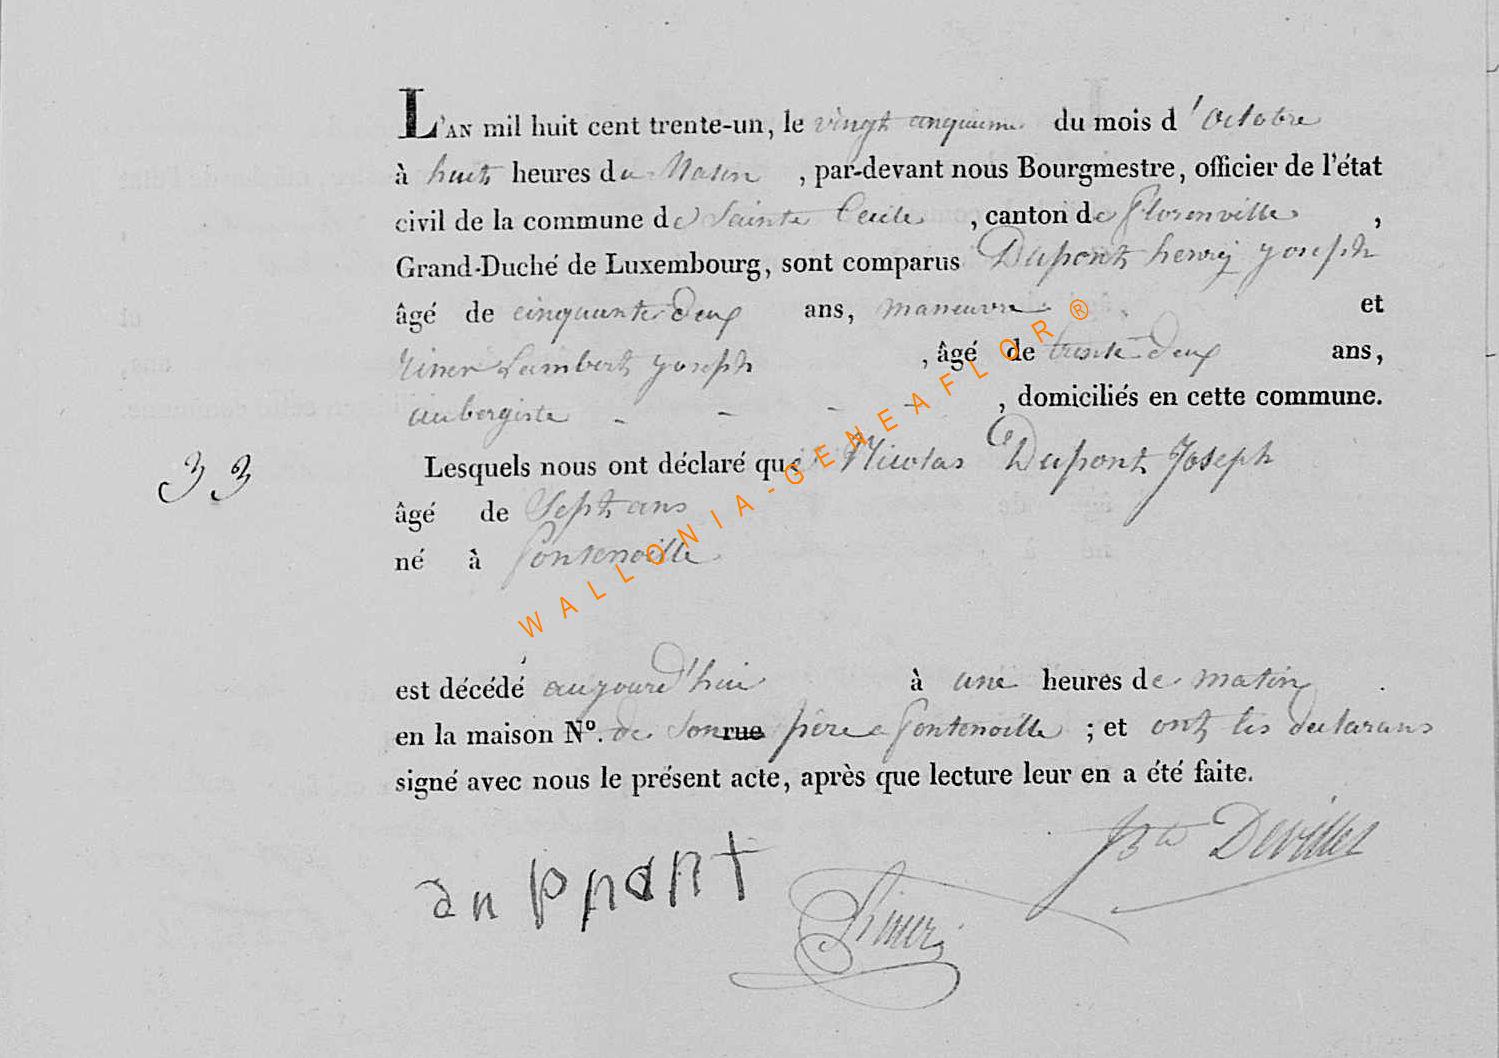 L'AN mil huit cent trente-un, le vingt cinquieme du mois d'octobre
à huit heures du Matin, par-devant nous Bourgmestre, officier de l'état
civil de la commune de Sainte Cecile, canton de Florenville,
Grand-Duché de Luxembourg, sont comparus Dupont henry joseph
âgé de cinquante deux ans, maneuvre et
Lambert joseph, âgé de trente deux ans,
aubergiste - - - -, domiciliés en cette commune.
33
Lesquels nous ont déclaré que Nicolas Dupont Joseph
âgé de Sept ans
né à fontenoille
est décédé aujourd'hui à une heures de matin.
en la maison Nº. de son rue père a fontenoille ; et ont les declarans
signé avec nous le présent acte, après que lecture leur en a été faite.
Devillet
WALLONIA-GENEAFLOR®